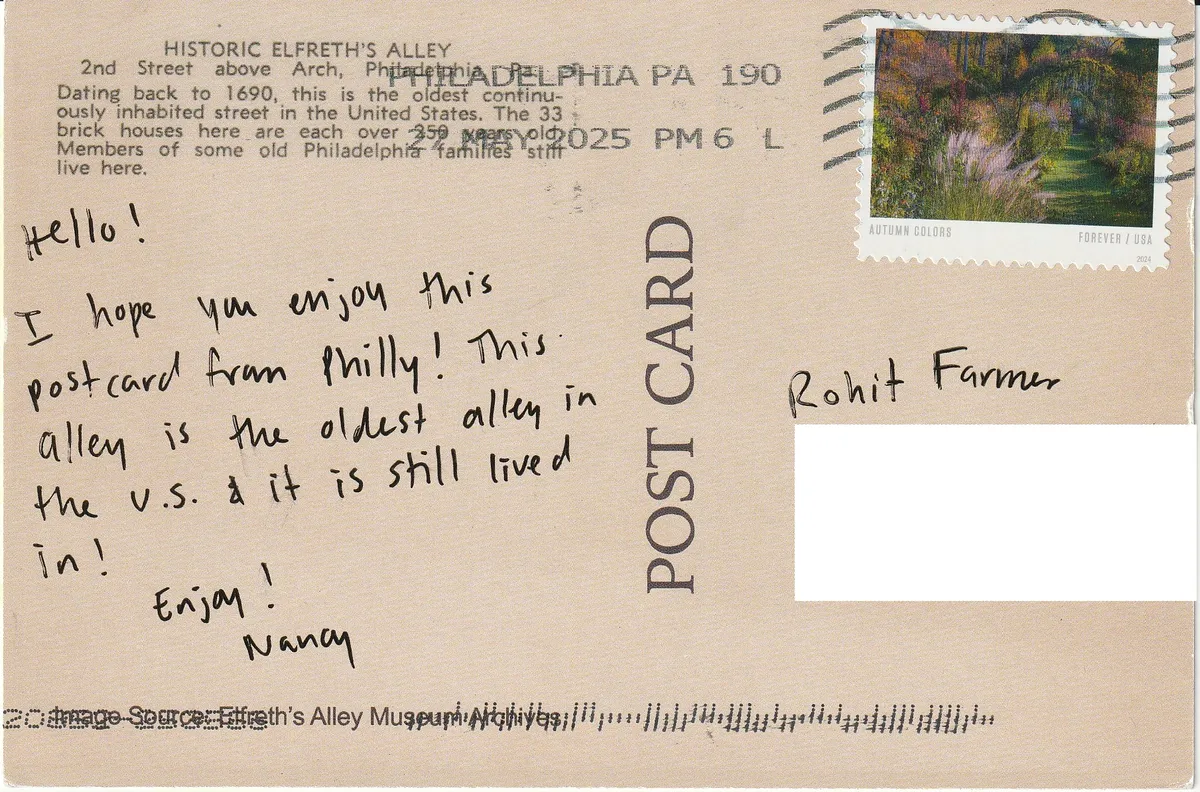 HISTORIC ELFRETH'S ALLEY
2nd Street above Arch, Philadelphia, Pa.
Dating back to 1690, this is the oldest continu-
ously inhabited street in the United States. The 33
brick houses here are each over 250 years old.
Members of some old Philadelphia families still
live here.
PHILADELPHIA PA 190
27 MAY 2025 PM 6 L
AUTUMN COLORS
FOREVER / USA
2024
Hello!
I hope you enjoy this
postcard from Philly! This
alley is the oldest alley in
the U.S. & it is still lived
in!
Enjoy!
Nancy
POST CARD
Rohit Farmer
Image Source: Elfreth's Alley Museum Archives